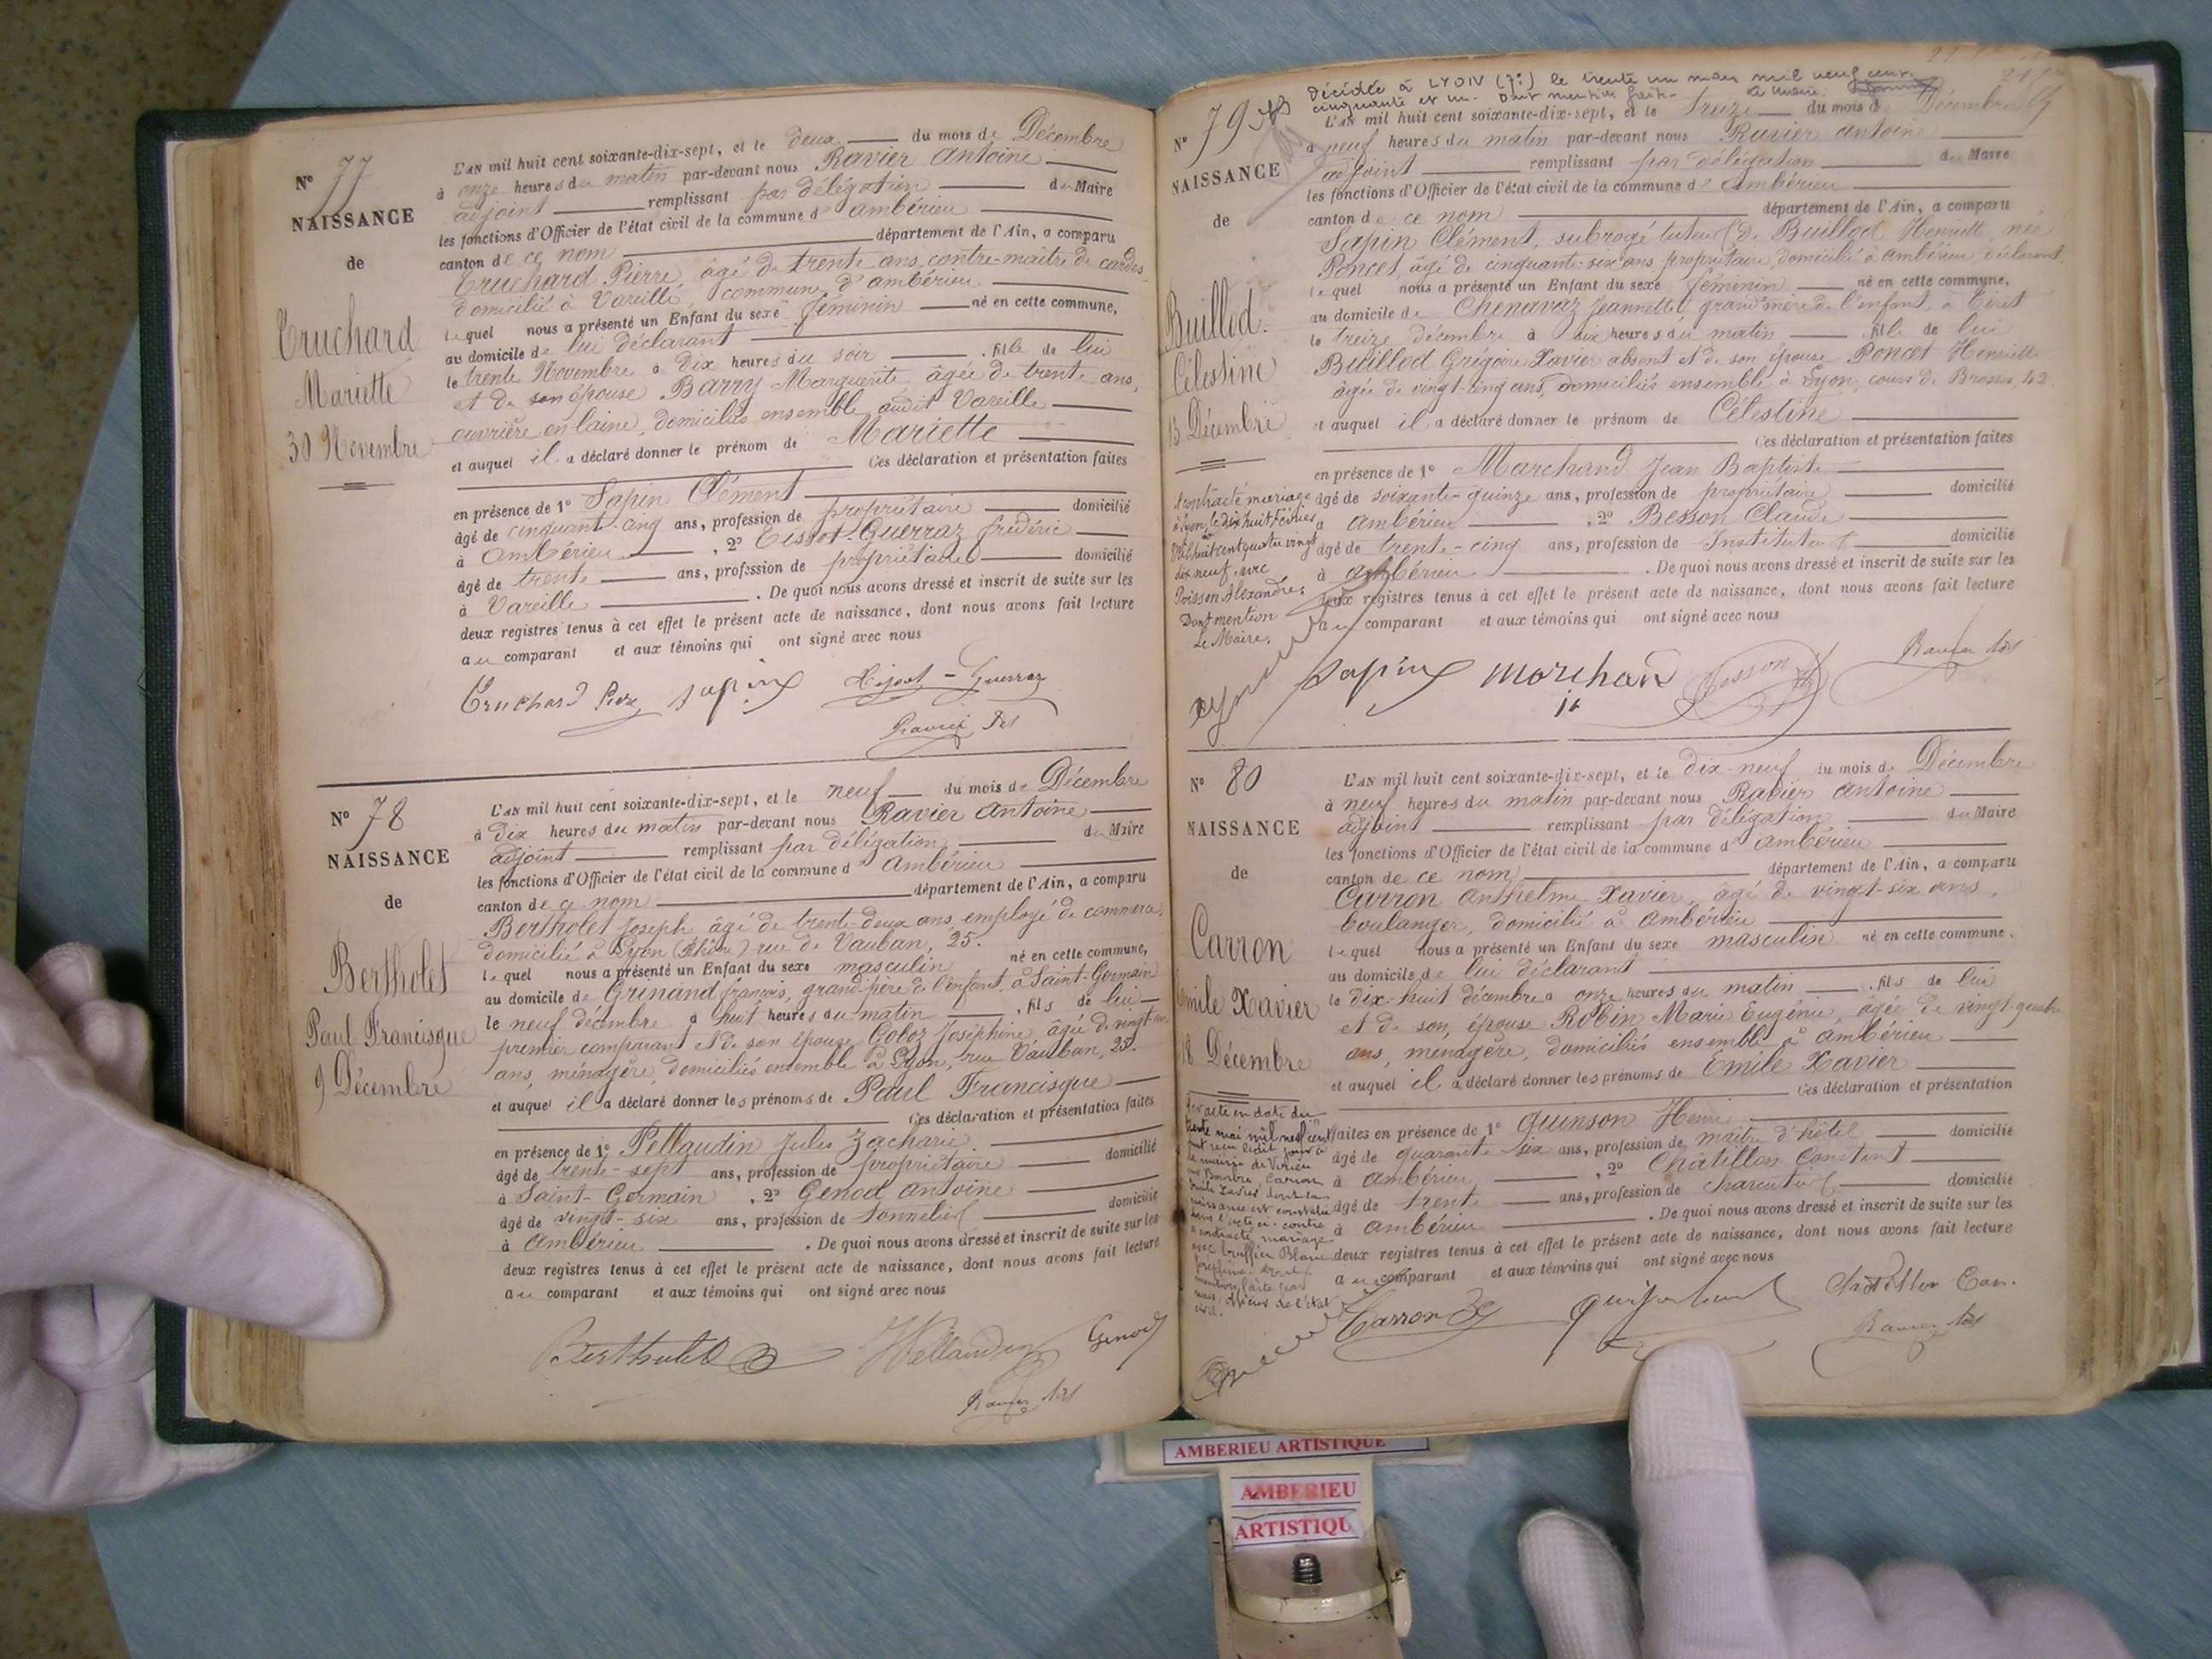 N° 77
NAISSANCE
de
Truchard
Mariette
30 Novembre
L'AN mil huit cent soixante-dix-sept, et le deux du mois de Décembre
à onze heures du matin par-devant nous Ravier Antoine
adjoint remplissant par délégation du Maire
les fonctions d'Officier de l'état civil de la commune d' Ambérieu
canton de ce nom département de l'Ain, a comparu
Truchard Pierre, âgé de trente ans, contre-maître de cardes
domicilié à Vareille, commune d'Ambérieu
lequel nous a présenté un Enfant du sexe féminin né en cette commune,
au domicile de lui déclarant
le trente Novembre à dix heures du soir fille de lui
et de son épouse Barry Marguerite âgée de trente ans,
ouvrière en laine, domiciliés ensemble audit Vareille
et auquel il a déclaré donner le prénom de Mariette
Ces déclaration et présentation faites
en présence de 1° Sapin Clément
âgé de cinquante-cinq ans, profession de propriétaire domicilié
à Ambérieu, 2° Tissot-Guerraz frédéric
âgé de trente ans, profession de propriétaire domicilié
à Vareille. De quoi nous avons dressé et inscrit de suite sur les
deux registres tenus à cet effet le présent acte de naissance, dont nous avons fait lecture
au comparant et aux témoins qui ont signé avec nous
Truchard Pierre Sapin Tissot-Guerraz
Ravier
N° 78
NAISSANCE
de
Bertholet
Paul Francisque
9 Décembre
L'AN mil huit cent soixante-dix-sept, et le neuf du mois de Décembre
à dix heures du matin par-devant nous Ravier Antoine
adjoint remplissant par délégation du Maire
les fonctions d'Officier de l'état civil de la commune d' Ambérieu
canton de ce nom département de l'Ain, a comparu
Bertholet Joseph âgé de trente-deux ans, employé de commerce,
domicilié à Lyon (Rhône) rue de Vauban, 25.
lequel nous a présenté un Enfant du sexe masculin né en cette commune,
au domicile de Grinand françois, grand-père de l'enfant, à Saint-Germain
le neuf décembre à huit heures du matin, fils de lui
premier comparant et de son épouse Goloz Joséphine, âgée de vingt
ans, ménagère, domiciliés ensemble à Lyon, rue Vauban, 25.
et auquel il a déclaré donner les prénoms de Paul Francisque
Ces déclaration et présentation faites
en présence de 1° Pellaudin Jules Zacharie
âgé de trente-sept ans, profession de propriétaire domicilié
à Saint-Germain, 2° Genod Antoine
âgé de vingt-six ans, profession de tonnelier domicilié
à Ambérieu. De quoi nous avons dressé et inscrit de suite sur les
deux registres tenus à cet effet le présent acte de naissance, dont nous avons fait lecture
au comparant et aux témoins qui ont signé avec nous
Bertholet Pellaudin Genod
Ravier
Décédée à LYON (7e) le trente un mars mil neuf cent
cinquante et un. Dont mention faite. Le Maire.
N° 79
NAISSANCE
de
Buillod
Célestine
13 Décembre
L'AN mil huit cent soixante-dix-sept, et le treize du mois de Décembre
à neuf heures du matin par-devant nous Ravier Antoine
adjoint remplissant par délégation du Maire
les fonctions d'Officier de l'état civil de la commune d' Ambérieu
canton de ce nom département de l'Ain, a comparu
Sapin Clément, subrogé tuteur de Buillod Henriette née
Poncet, âgé de cinquante-six ans propriétaire, domicilié à Ambérieu, déclarant
lequel nous a présenté un Enfant du sexe féminin né en cette commune,
au domicile de Chenavaz Jeannette, grand'mère de l'enfant, à Tiret
le treize décembre à six heures du matin fille de lui
Buillod Grégoire Xavier absent et de son épouse Poncet Henriette
âgée de vingt-cinq ans, domiciliés ensemble à Lyon, cours de Brosses, 42
et auquel il a déclaré donner le prénom de Célestine
Ces déclaration et présentation faites
en présence de 1° Marchand Jean Baptiste
âgé de soixante-quinze ans, profession de propriétaire domicilié
à Ambérieu, 2° Besson Claude
âgé de trente-cinq ans, profession de Instituteur domicilié
à Ambérieu. De quoi nous avons dressé et inscrit de suite sur les
deux registres tenus à cet effet le présent acte de naissance, dont nous avons fait lecture
au comparant et aux témoins qui ont signé avec nous
A contracté mariage
à Lyon, le dix huit février
mil huit cent quatre vingt
dix neuf, avec
Poisson Alexandre.
Dont mention
Le Maire.
Sapin Marchand Besson Ravier
N° 80
NAISSANCE
de
Carron
Emile Xavier
18 Décembre
L'AN mil huit cent soixante-dix-sept, et le dix-neuf du mois de Décembre
à neuf heures du matin par-devant nous Ravier Antoine
adjoint remplissant par délégation du Maire
les fonctions d'Officier de l'état civil de la commune d' Ambérieu
canton de ce nom département de l'Ain, a comparu
Carron Anthelme Xavier, âgé de vingt-six ans,
boulanger, domicilié à Ambérieu
lequel nous a présenté un Enfant du sexe masculin né en cette commune,
au domicile de lui déclarant
le dix-huit décembre à onze heures du matin, fils de lui
et de son épouse Robin Marie Eugénie, âgée de vingt-quatre
ans, ménagère, domiciliés ensemble à Ambérieu
et auquel il a déclaré donner les prénoms de Emile Xavier
Ces déclaration et présentation
faites en présence de 1° Quinson Henri
âgé de quarante-six ans, profession de maître d'hôtel domicilié
à Ambérieu, 2° Châtillon Constant
âgé de trente ans, profession de charcutier domicilié
à Ambérieu. De quoi nous avons dressé et inscrit de suite sur les
deux registres tenus à cet effet le présent acte de naissance, dont nous avons fait lecture
au comparant et aux témoins qui ont signé avec nous
Par acte en date du
trente mai mil neuf cent
la mairie de Virieu
sur Bourbre, Carron
Emile Xavier dont la
naissance est constatée
dans l'acte ci-contre
a contracté mariage
avec Blanc
Joséphine
civil.
Carron Châtillon Con.
Ravier
AMBERIEU ARTISTIQUE
AMBERIEU
ARTISTIQU